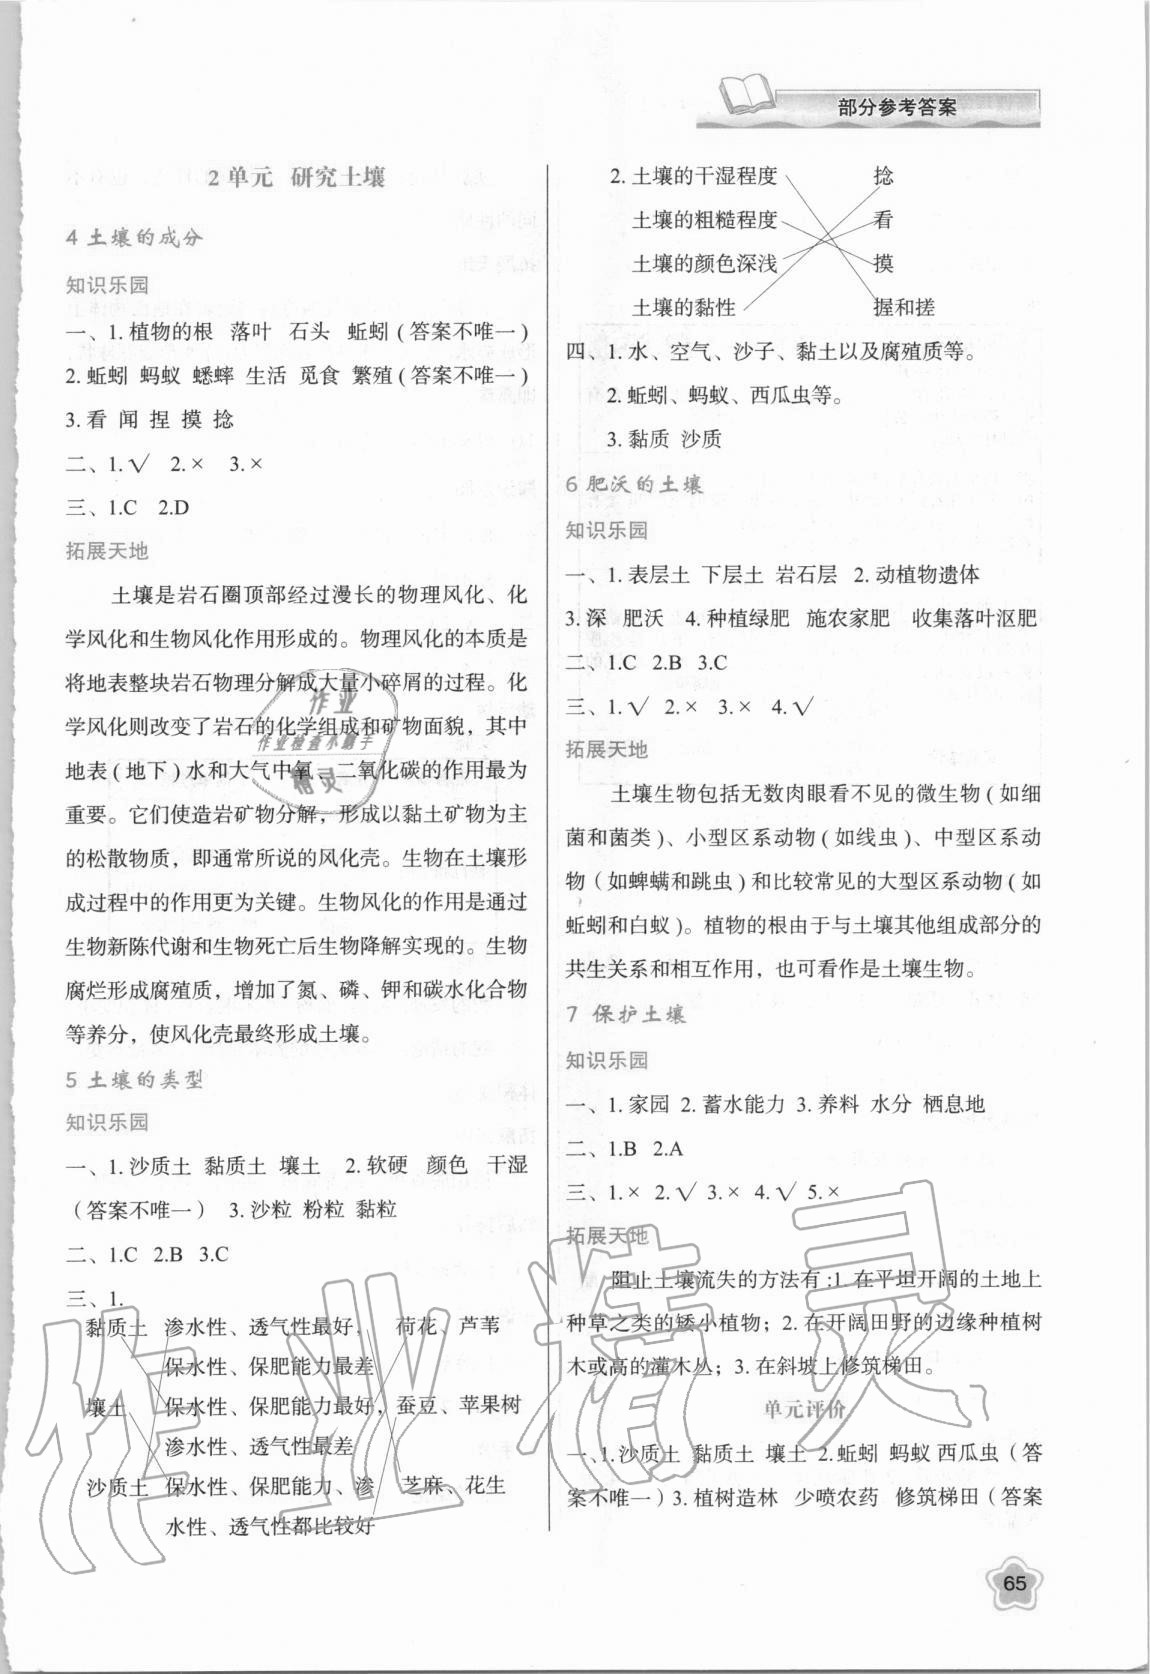 部分参考答案
2单元 研究土壤
4 土壤的成分
知识乐园
一、1.植物的根 落叶 石头 蚯蚓(答案不唯一)
2.蚯蚓 蚂蚁 蟋蟀 生活 觅食 繁殖(答案不唯一)
3.看 闻 捏 摸 捻
二、1.√ 2.× 3.×
三、1.C 2.D
拓展天地
土壤是岩石圈顶部经过漫长的物理风化、化
学风化和生物风化作用形成的。物理风化的本质是
将地表整块岩石物理分解成大量小碎屑的过程。化
学风化则改变了岩石的化学组成和矿物面貌，其中
地表(地下)水和大气中氧、二氧化碳的作用最为
重要。它们使造岩矿物分解，形成以黏土矿物为主
的松散物质，即通常所说的风化壳。生物在土壤形
成过程中的作用更为关键。生物风化的作用是通过
生物新陈代谢和生物死亡后生物降解实现的。生物
腐烂形成腐殖质，增加了氮、磷、钾和碳水化合物
等养分，使风化壳最终形成土壤。
5 土壤的类型
知识乐园
一、1.沙质土 黏质土 壤土 2.软硬 颜色 干湿
(答案不唯一) 3.沙粒 粉粒 黏粒
二、1.C 2.B 3.C
三、1.
黏质土 渗水性、透气性最好， 荷花、芦苇
保水性、保肥能力最差
壤土 保水性、保肥能力最好， 蚕豆、苹果树
渗水性、透气性最差
沙质土 保水性、保肥能力、渗 芝麻、花生
水性、透气性都比较好
2.土壤的干湿程度 捻
土壤的粗糙程度 看
土壤的颜色深浅 摸
土壤的黏性 握和搓
四、1.水、空气、沙子、黏土以及腐殖质等。
2.蚯蚓、蚂蚁、西瓜虫等。
3.黏质 沙质
6 肥沃的土壤
知识乐园
一、1.表层土 下层土 岩石层 2.动植物遗体
3.深 肥沃 4.种植绿肥 施农家肥 收集落叶沤肥
二、1.C 2.B 3.C
三、1.√ 2.× 3.× 4.√
拓展天地
土壤生物包括无数肉眼看不见的微生物(如细
菌和菌类)、小型区系动物(如线虫)、中型区系动
物(如蜱螨和跳虫)和比较常见的大型区系动物(如
蚯蚓和白蚁)。植物的根由于与土壤其他组成部分的
共生关系和相互作用，也可看作是土壤生物。
7 保护土壤
知识乐园
一、1.家园 2.蓄水能力 3.养料 水分 栖息地
二、1.B 2.A
三、1.× 2.√ 3.× 4.√ 5.×
拓展天地
阻止土壤流失的方法有:1.在平坦开阔的土地上
种草之类的矮小植物；2.在开阔田野的边缘种植树
木或高的灌木丛；3.在斜坡上修筑梯田。
单元评价
一、1.沙质土 黏质土 壤土 2.蚯蚓 蚂蚁 西瓜虫(答
案不唯一)3.植树造林 少喷农药 修筑梯田(答案
65
作业
作业检查小助手
精灵
作业精灵